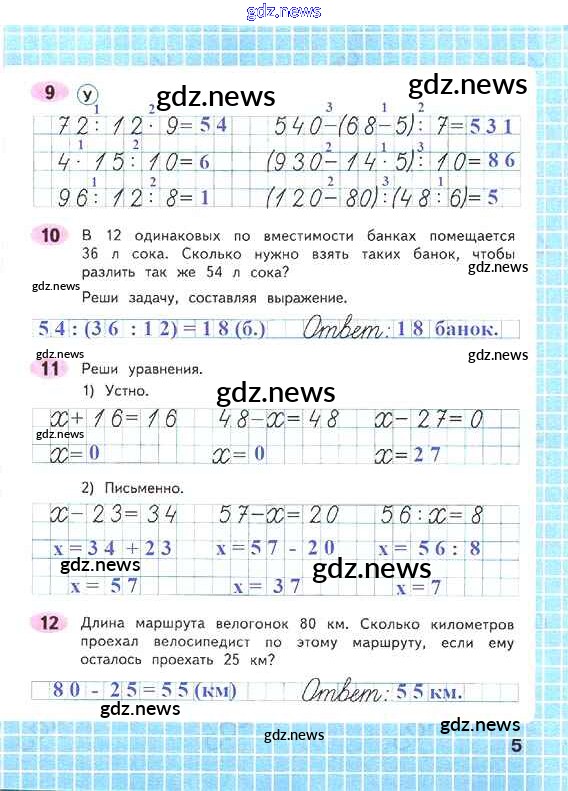 gdz.news
gdz.news
9 У gdz.news
1 2 3 1 2
72 : 12 · 9 = 54 540 – (68 – 5) : 7 = 531
1 2 2 1 3
4 · 15 : 10 = 6 (930 – 14 · 5) : 10 = 86
1 2 1 3 2
96 : 12 : 8 = 1 (120 – 80) : (48 : 6) = 5
10 В 12 одинаковых по вместимости банках помещается
36 л сока. Сколько нужно взять таких банок, чтобы
разлить так же 54 л сока?
gdz.news
Реши задачу, составляя выражение.
54 : (36 : 12) = 18 (б.) Ответ: 18 банок.
gdz.news gdz.news
11 Реши уравнения.
1) Устно.
gdz.news
x + 16 = 16 48 – x = 48 x – 27 = 0
gdz.news
x = 0 x = 0 x = 27
2) Письменно.
x – 23 = 34 57 – x = 20 56 : x = 8
x = 34 + 23 x = 57 - 20 x = 56 : 8
gdz.news gdz.news
x = 57 x = 37 x = 7
12 Длина маршрута велогонок 80 км. Сколько километров
проехал велосипедист по этому маршруту, если ему
осталось проехать 25 км?
gdz.news
80 - 25 = 55 (км) Ответ: 55 км.
gdz.news
gdz.news
gdz.news
5